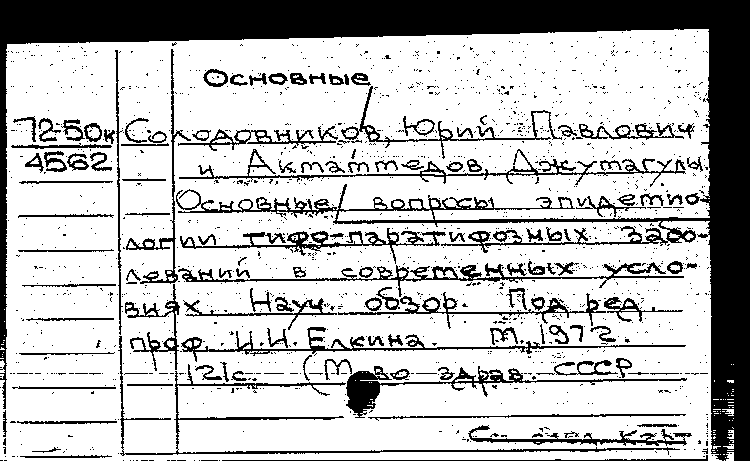 Основные
72-50к Солодовников, Юрий Павлович
4562 и Актаммедов, Джумагулы
Основные вопросы эпидемио-
логии тифо-паратифозных забо-
леваний в современных усло-
виях. Науч. обзор. Под ред.
проф. И.И. Елкина. М., 1972.
121с. (М-во здрав. СССР.
См. след. карт.